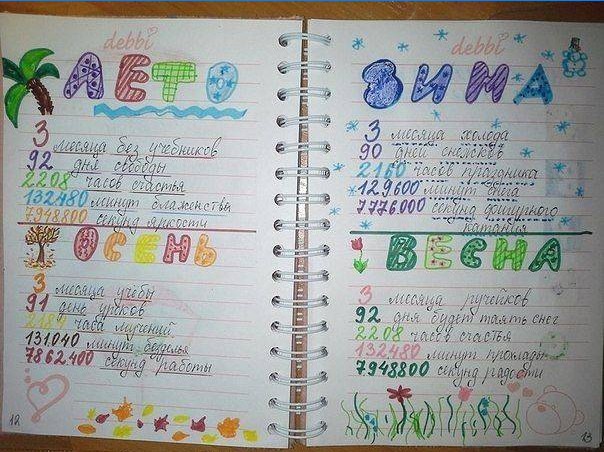 debbi
ЛЕТО
3 месяца без учебников
92 дня свободы
2208 часов счастья
132480 минут блаженства
7948800 секунд яркости
ОСЕНЬ
3 месяца учебы
91 день уроков
2184 часа мучений
131.040 минут безделья
7862.400 секунд работы
12
debbi
ЗИМА
3 месяца холода
90 дней снежков
2160 часов праздника
129600 минут
7.776.000 секунд фигурного
катания
ВЕСНА
3 месяца ручейков
92 дня будет таять снег
2208 часов счастья
132480 минут прохлады
7948800 секунд радости
13